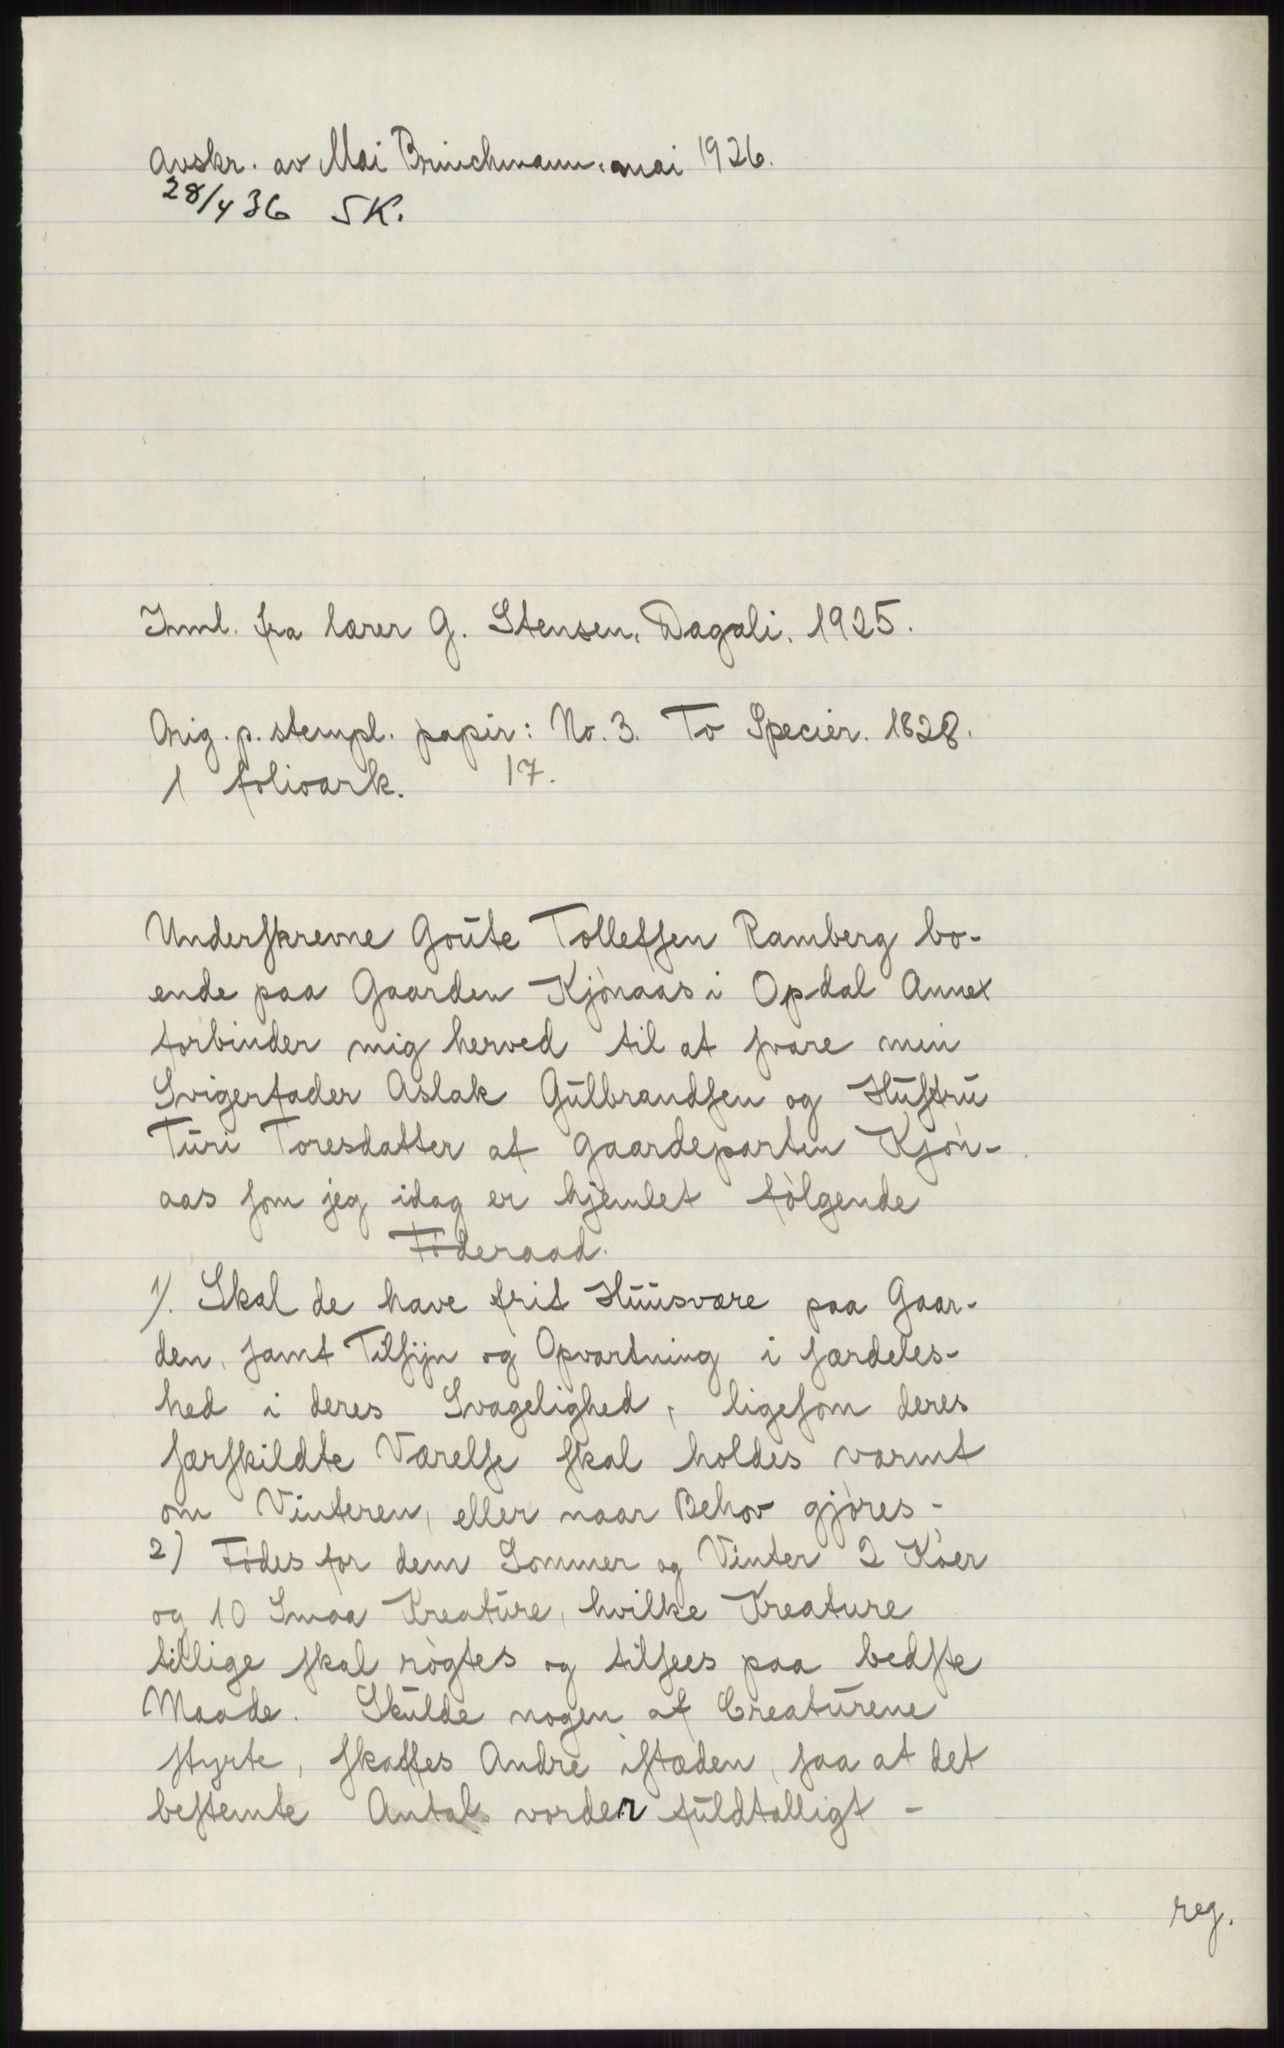 Avskr. av Mai Brinchmann, mai 1926.
28/4 36 SK.
Innl. fra lærer G. Stensen, Dagali. 1925.
Orig. p. stempl. papir: No. 3. To Specier. 1828.
1 folioark. 17.
Underskrevne Goüte Tollefsen Ramberg bo-
ende paa Gaarden Kjönaas i Opdal Annex
forbinder mig herved til at svare min
Svigerfader Aslak Gülbrandsen og Hüstrü
Türi Toresdatter af Gaardeparten Kjön-
aas som jeg idag er hjemlet følgende
Föderaad.
1). Skal de have frit Hüüsvære paa Gaar-
den, samt Tilsijn og Opvartning i særdeles-
hed i deres Svagelighed, ligesom deres
særskildte Værelse skal holdes varmt
om Vinteren, eller naar Behov gjöres -
2) Födes for dem Sommer og Vinter 2 Köer
og 10 Smaa Kreatüre, hvilke Kreature
tillige skal rögtes og tilsees paa bedste
Maade. Skülde nogen af Creatürene
styrte, skaffes Andre istæden, saa at det
bestemte Antal vorder füldtalligt -
reg.